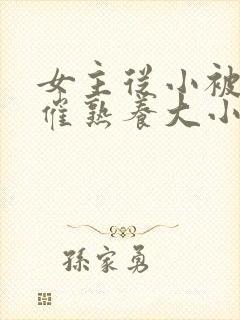 女主從小被
催熟養大小
孫家勇